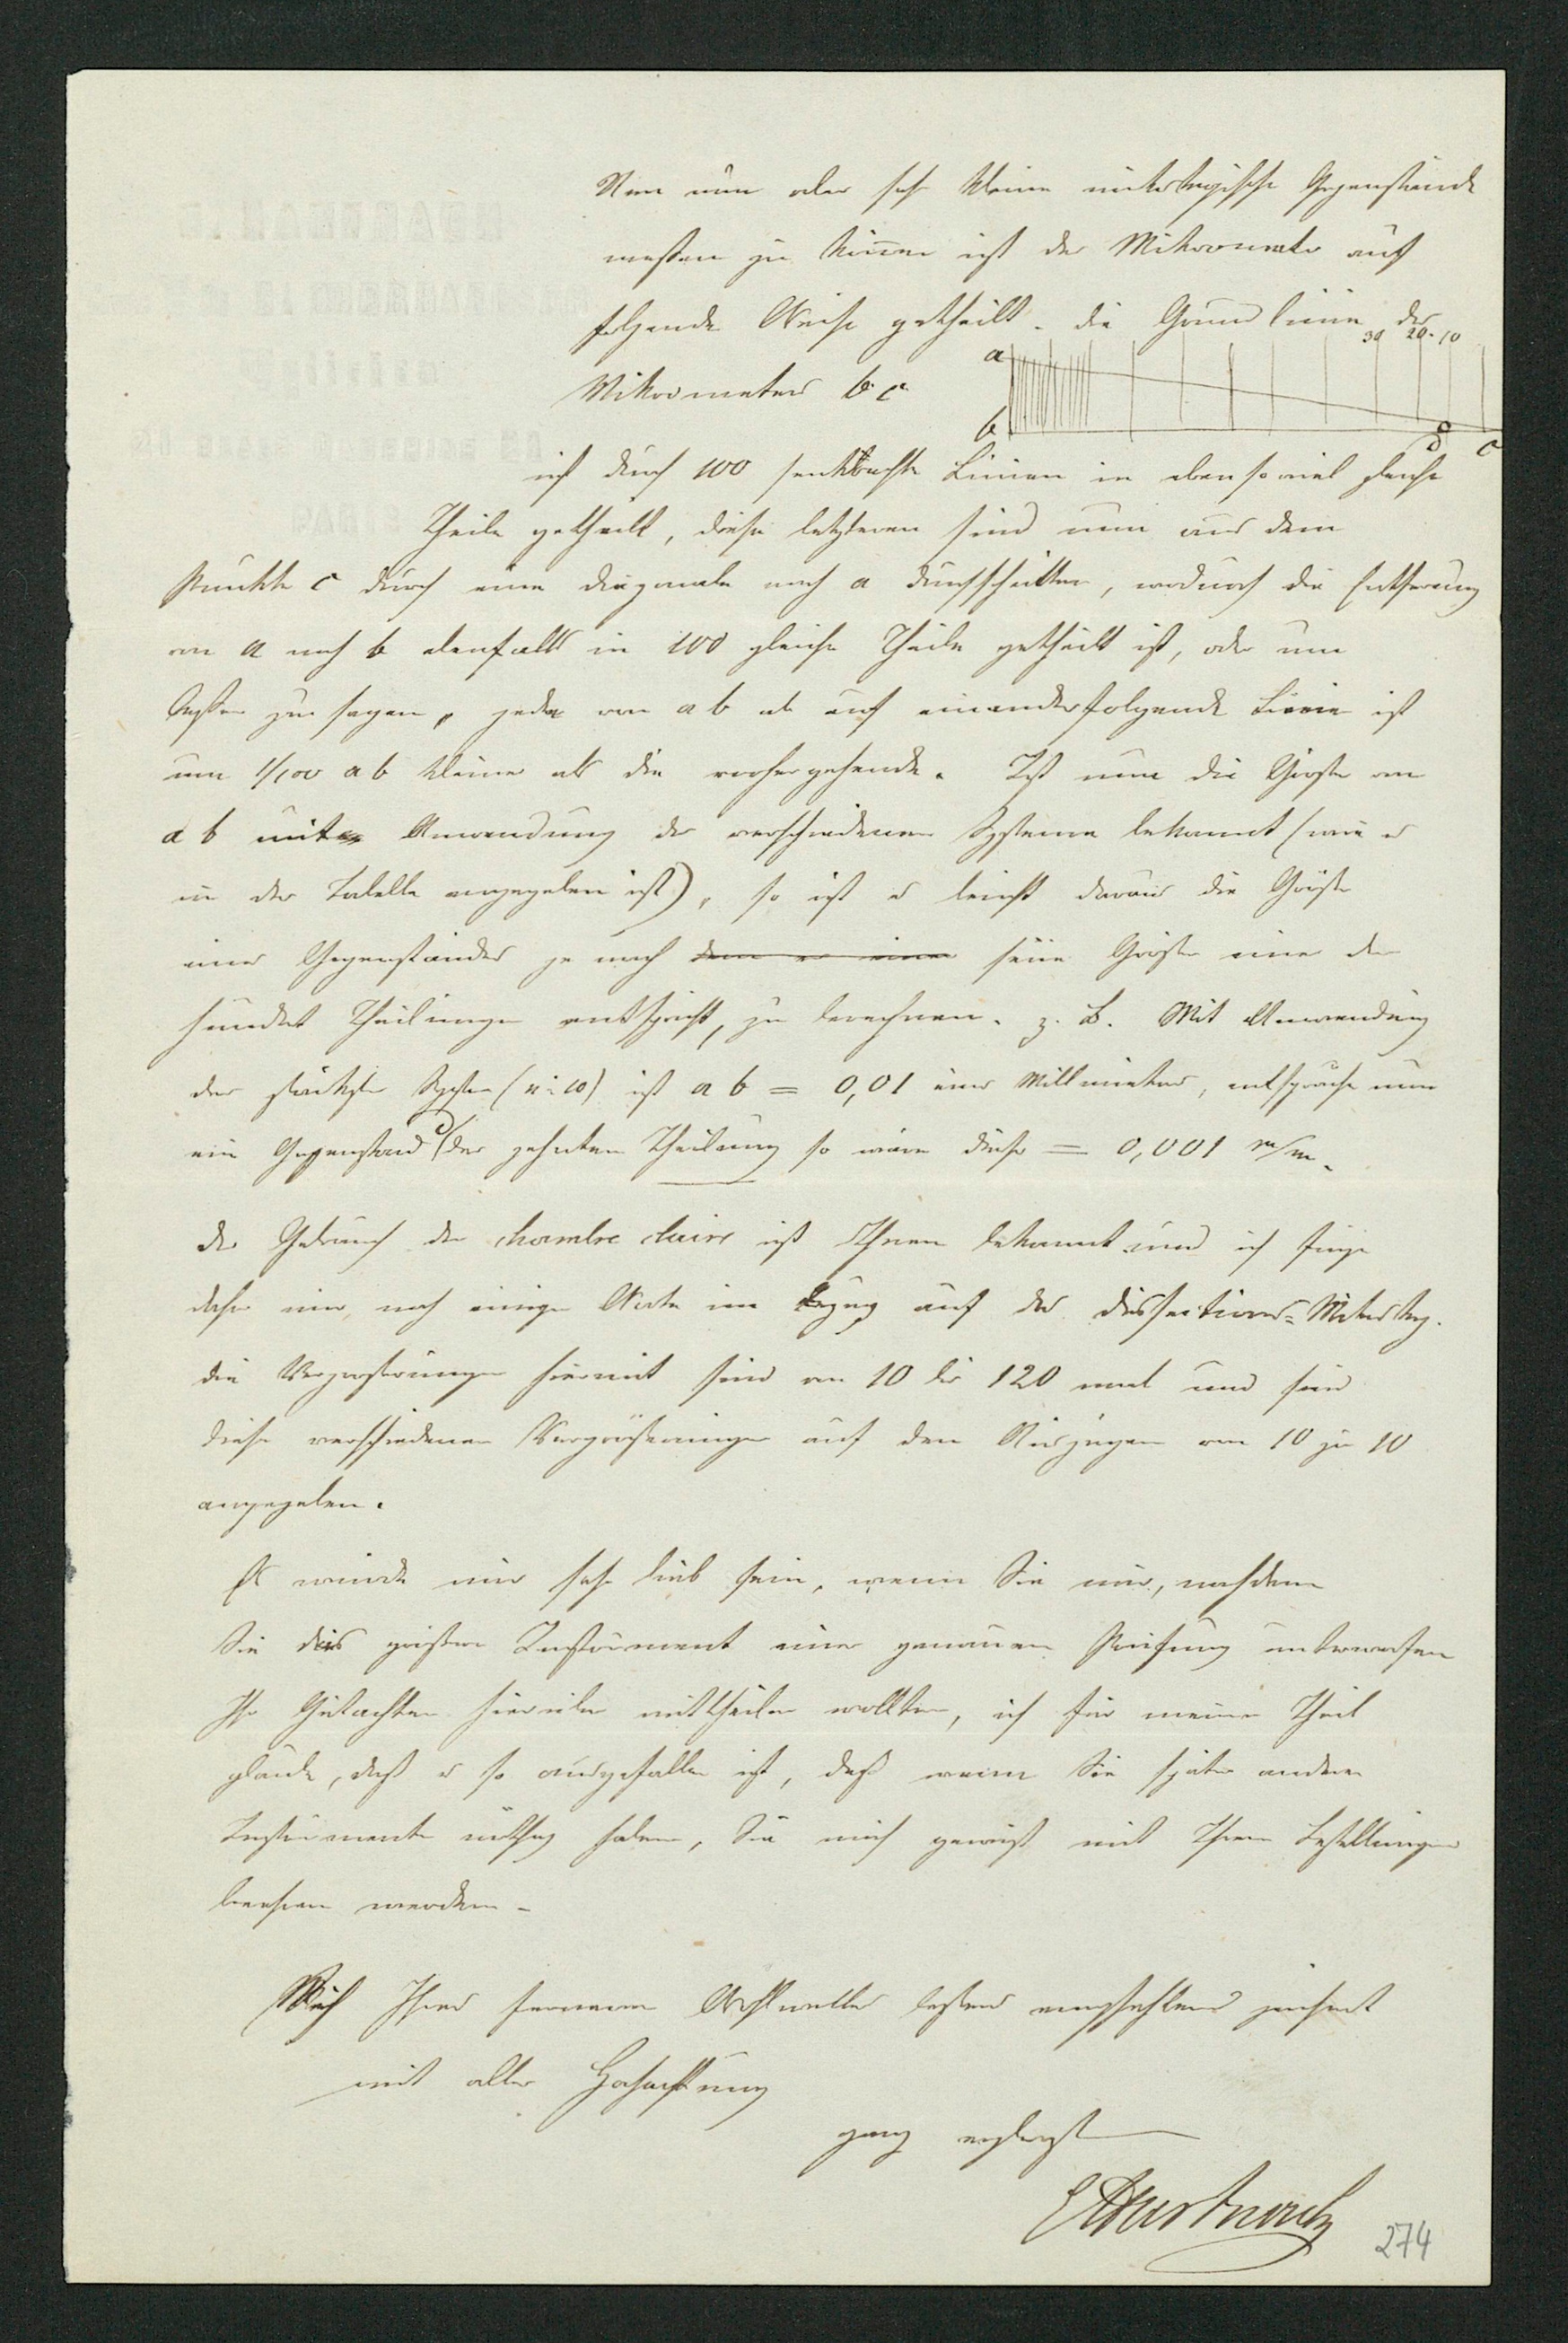 Um nun aber sehr kleine mikroskopische Gegenstände
messen zu können ist der Mikrometer auf
folgende Weise getheilt. die Grundlinie des
30 20 10
a
Mikrometers b c
b d c
ist durch 100 senkrechte Linien in ebensoviel gleiche
Theile getheilt, diese letzteren sind nun aus dem
Punkte c durch eine diagonale nach a durchschnitten, wodurch die Entfernung
von a nach b ebenfalls in 100 gleiche Theile getheilt ist, oder um
besser zu sagen, jede von a b ab auf einanderfolgende Linie ist
um 1/100 a b kleiner als die vorhergehende. Ist nun die Größe von
a b unter Anwendung der verschiedenen Systeme bekannt (wie es
in der Tabelle angegeben ist), so ist es leicht daraus die Größe
eines Gegenstandes je nach dem er einer seine Größe einer der
hundert Theilungen entspricht, zu berechnen. z. B. Mit Anwendung
des stärksten System (n: 10) ist a b = 0,01 eines Millimeters, entspräche nun
ein Gegenstand der zehnten Theilung so wäre dieser = 0,001 m/m.
der Gebrauch der chambre claire ist Ihnen bekannt und ich füge
daher nur noch einige Worte in Bezug auf das dissections-Mikroskop.
die Vergrößerungen hiermit sind von 10 bis 120 mal und sind
diese verschiedenen Vergrößerungen auf den Auszügen von 10 zu 10
angegeben.
Es würde mir sehr lieb sein, wenn Sie mir, nachdem
Sie das größere Instrument einer genauen Prüfung unterworfen
Ihr Gutachten hierüber mittheilen wollten, ich für meinen Theil
glaube, daß es so ausgefallen ist, daß wenn Sie später andere
Instrumente nöthig haben, Sie mich gewiß mit Ihren Bestellungen
beehren werden.
Mich Ihres ferneren Wohlwollens bestens empfehlend zeichnet
mit aller Hochachtung
ganz ergebenst
E Hartnack
274